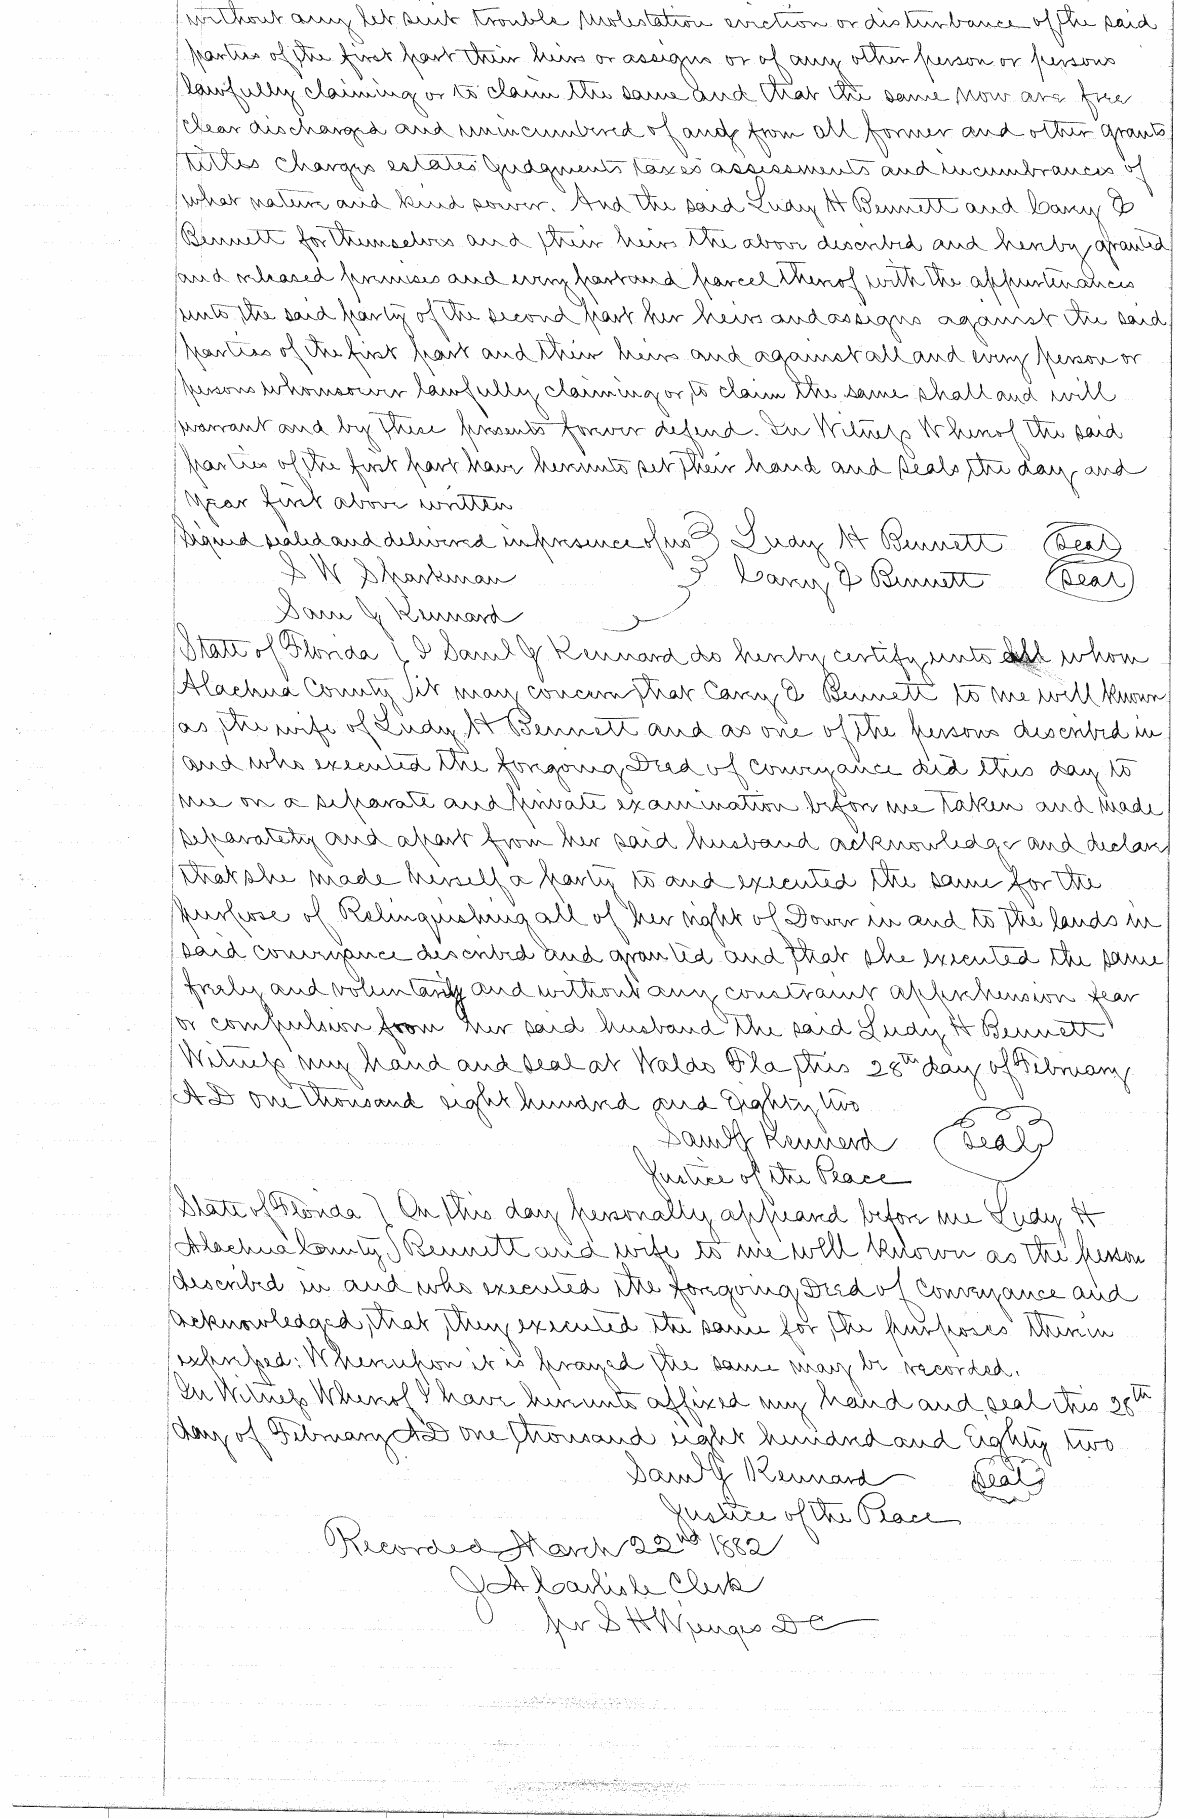 without any let suit trouble molestation eviction or disturbance of the said
parties of the first part their heirs or assigns or of any other person or persons
lawfully claiming or to claim the same and that the same now are free
clear discharged and unincumbered of and from all former and other grants
titles charges estates Judgments taxes assessments and incumbrances of
what nature and kind soever. And the said Ludy H Bennett and Carry E
Bennett for themselves and their heirs the above described and hereby granted
and released premises and every part and parcel thereof with the appurtenances
unto the said party of the second part her heirs and assigns against the said
parties of the first part and their heirs and against all and every person or
persons whomsoever lawfully claiming or to claim the same shall and will
warrant and by these presents forever defend. In Witness Whereof the said
parties of the first part have hereunto set their hand and seals the day and
year first above written
Signed sealed and delivered in presence of us } Ludy H Bennett (Seal)
S W Sparkman } Carry E Bennett (Seal)
Sam J Kennard
State of Florida } I Saml J Kennard do hereby certify unto all whom
Alachua County } it may concern that Carry E Bennett to me well known
as the wife of Ludy H Bennett and as one of the persons described in
and who executed the foregoing Deed of conveyance did this day to
me on a separate and private examination before me taken and made
separately and apart from her said husband acknowledge and declare
that she made herself a party to and executed the same for the
purpose of Relinquishing all of her right of Dower in and to the lands in
said conveyance described and granted and that she executed the same
freely and voluntarily and without any constraint apprehension fear
or compulsion from her said husband the said Ludy H Bennett
Witness my hand and seal at Waldo Fla this 28th day of February
AD one thousand eight hundred and Eighty two
Saml J Kennard (Seal)
Justice of the Peace
State of Florida } On this day personally appeared before me Ludy H
Alachua County } Bennett and wife to me well known as the person
described in and who executed the foregoing Deed of Conveyance and
acknowledged that they executed the same for the purposes therein
expressed: Whereupon it is prayed the same may be recorded.
In Witness Whereof I have hereunto affixed my hand and seal this 28th
day of February AD one thousand eight hundred and Eighty two
Saml J Kennard (Seal)
Justice of the Peace
Recorded March 22nd 1882
J A Carlisle Clerk
per S H Wienges DC